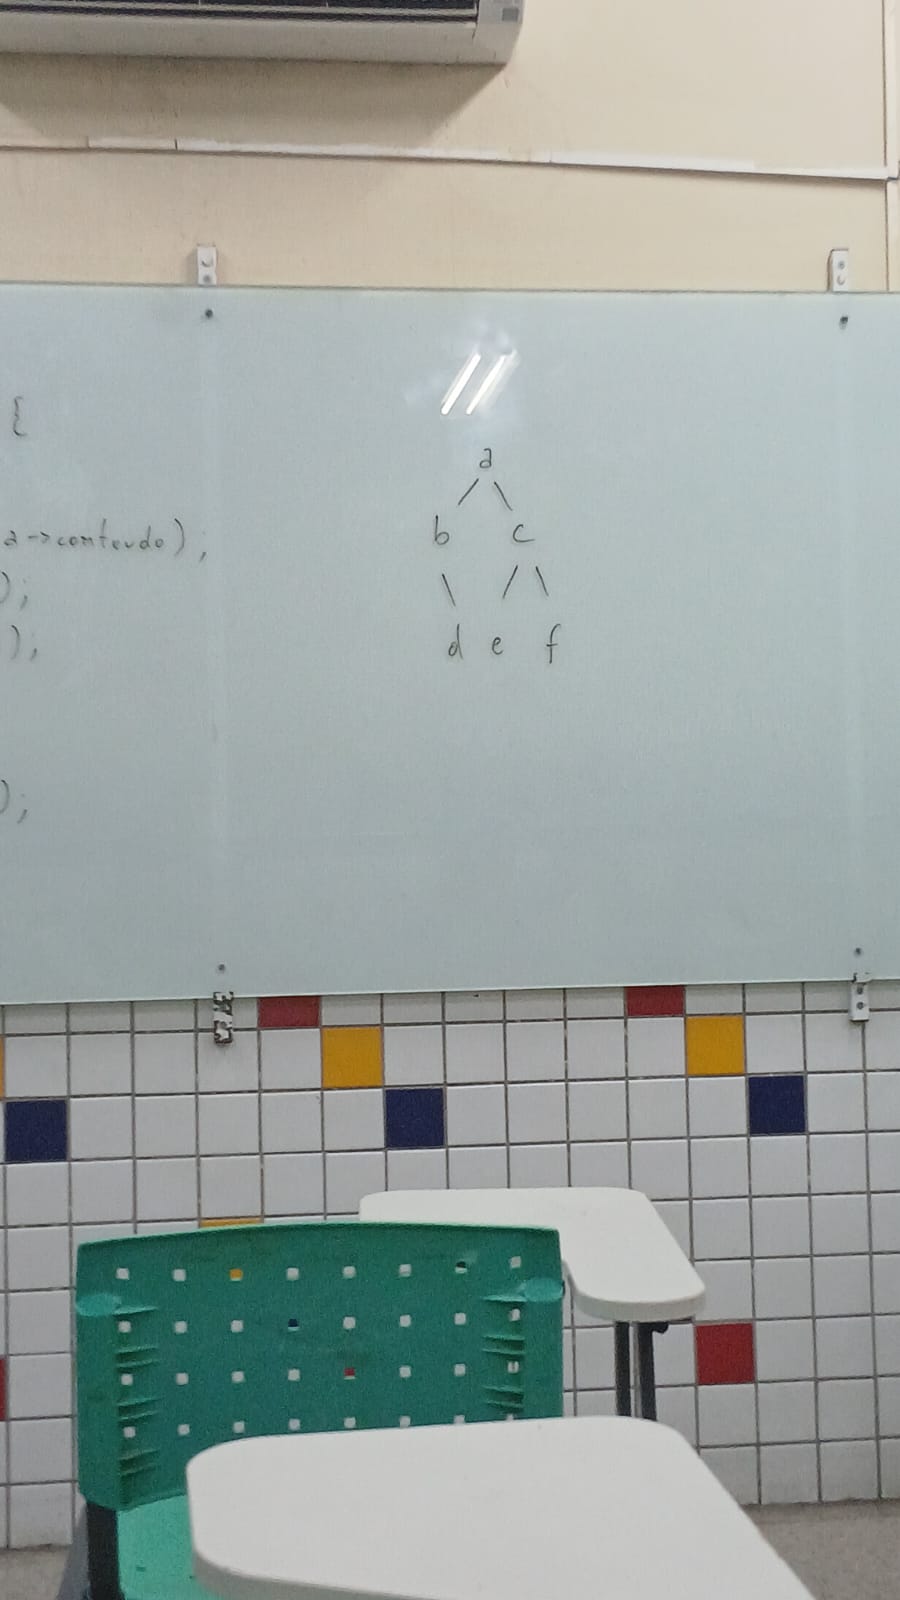 {
a->conteudo);
);
);
);
a
b c
d e f